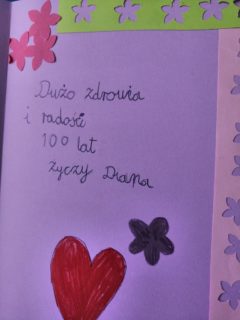 Dużo zdrowia
i radości
100 lat
życzy Diana